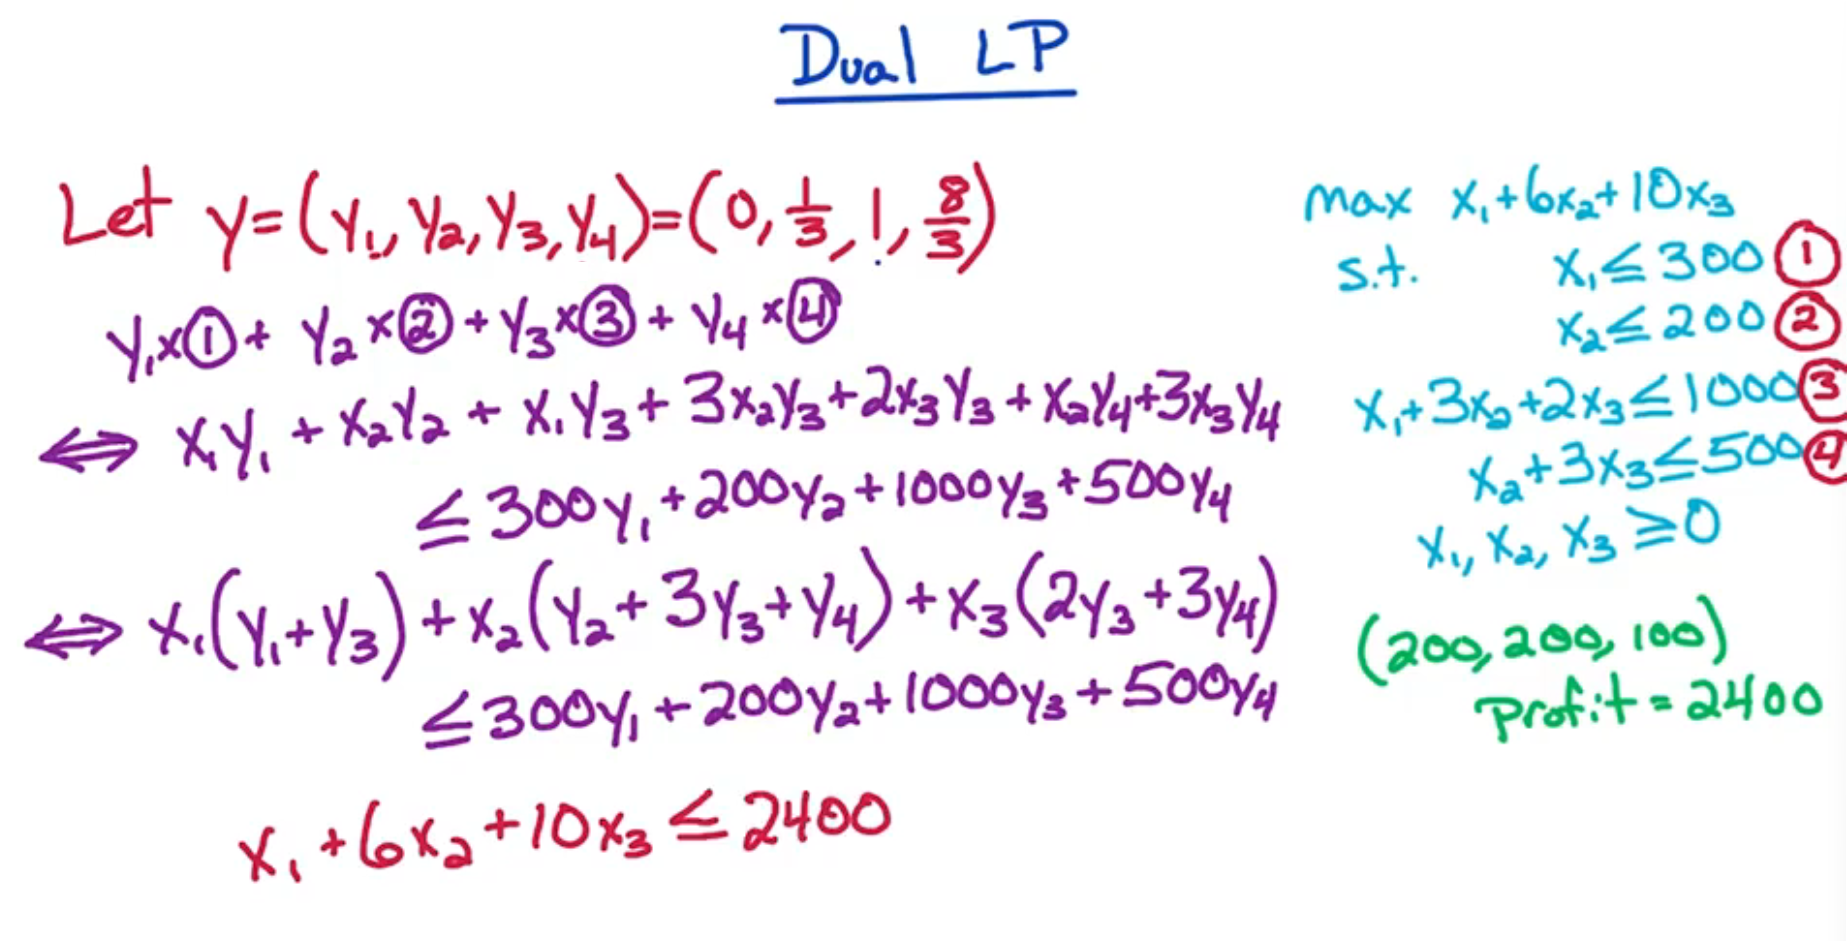 Dual LP
Let y=(y₁, y₂, y₃, y₄)=(0, 1/3, 1, 8/3)
y₁×① + y₂×② + y₃×③ + y₄×④
⟺ x₁y₁ + x₂y₂ + x₁y₃ + 3x₂y₃+2x₃y₃ + x₂y₄+3x₃y₄
≤ 300y₁+200y₂+1000y₃+500y₄
⟺ x₁(y₁+y₃) + x₂(y₂+3y₃+y₄) + x₃(2y₃+3y₄)
≤300y₁+200y₂+1000y₃+500y₄
x₁+6x₂+10x₃ ≤ 2400
max x₁+6x₂+10x₃
s.t. x₁≤300 ①
x₂≤200 ②
x₁+3x₂+2x₃≤1000 ③
x₂+3x₃≤500 ④
x₁, x₂, x₃ ≥0
(200, 200, 100)
Profit = 2400